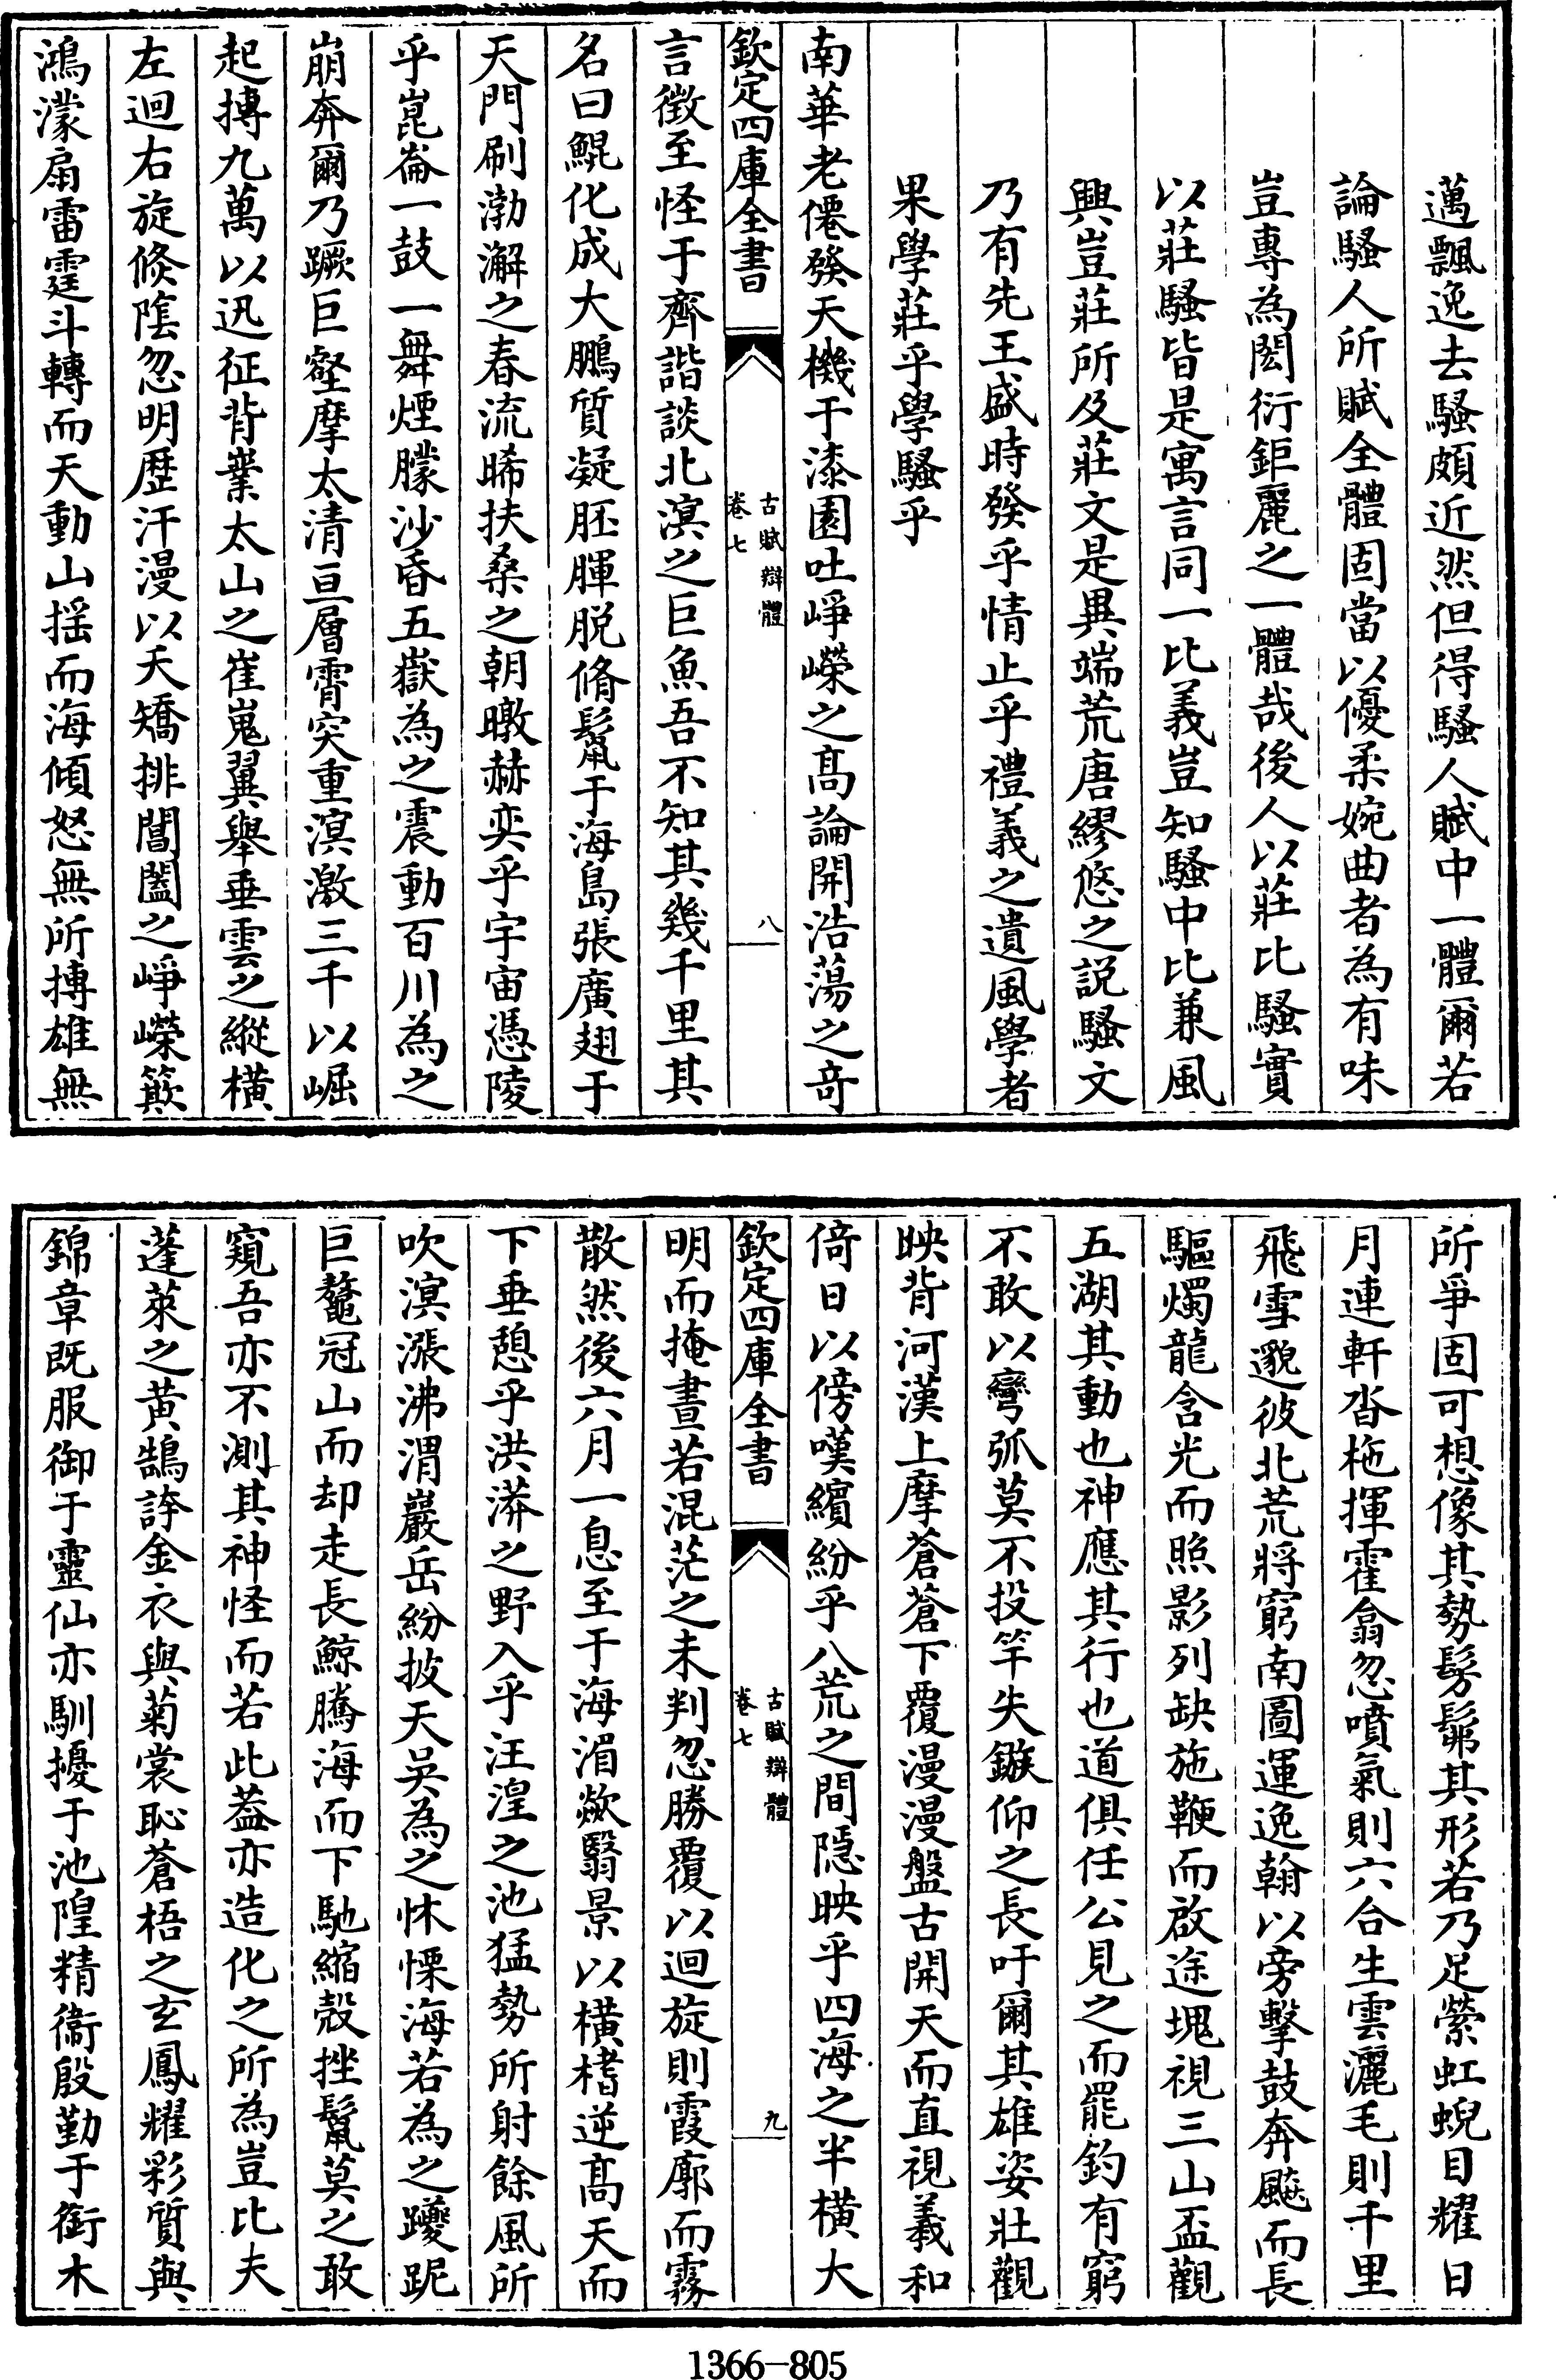 邁飄逸去騷頗近然但得騷人賦中一體爾若
論騷人所賦全體固當以優柔婉曲者為有味
豈專為閎衍鉅麗之一體哉後人以莊比騷實
以莊騷皆是寓言同一比義豈知騷中比兼風
興豈莊所及莊文是異端荒唐繆悠之説騷文
乃有先王盛時發乎情止乎禮義之遺風學者
果學莊乎學騷乎
南華老僊發天機于漆園吐崢嶸之髙論開浩蕩之竒
欽定四庫全書
古賦辯體
卷七
八
言徴至怪于齊諧談北溟之巨魚吾不知其幾千里其
名曰鯤化成大鵬質凝胚腪脱脩鬣于海島張廣翅于
天門刷渤澥之春流晞扶桑之朝暾赫奕乎宇宙憑陵
乎崑崙一鼓一舞煙朦沙昏五嶽為之震動百川為之
崩奔爾乃蹶巨壑摩太清亘層霄突重溟激三千以崛
起摶九萬以迅征背嶪太山之崔嵬翼舉垂雲之縱橫
左迴右旋倏陰忽明歴汗漫以夭矯排閶闔之崢嶸簸
鴻濛扇雷霆斗轉而天動山揺而海傾怒無所搏雄無
所爭固可想像其勢髣髴其形若乃足縈虹蜺目耀日
月連軒沓拖揮霍翕忽噴氣則六合生雲灑毛則千里
飛雪邈彼北荒將窮南圖運逸翰以旁擊鼓奔飈而長
驅燭龍含光而照影列缺施鞭而啟途塊視三山盃觀
五湖其動也神應其行也道俱任公見之而罷釣有窮
不敢以彎弧莫不投竿失鏃仰之長吁爾其雄姿壯觀
映背河漢上摩蒼蒼下覆漫漫盤古開天而直視羲和
倚日以傍嘆繽紛乎八荒之間隱映乎四海之半橫大
欽定四庫全書
古賦辯體
卷七
九
明而掩晝若混茫之未判忽騰覆以迴旋則霞廓而霧
散然後六月一息至于海湄欻翳景以橫㯊逆髙天而
下垂憩乎泱漭之野入乎汪湟之池猛勢所射餘風所
吹溟漲沸渭巖岳紛披天吳為之怵慄海若為之躨跜
巨鼇冠山而却走長鯨騰海而下馳縮殼挫鬣莫之敢
窺吾亦不測其神怪而若此葢亦造化之所為豈比夫
蓬萊之黄鵠誇金衣與菊裳恥蒼梧之玄鳳耀彩質與
錦章既服御于靈仙亦馴擾于池隍精衞殷勤于銜木
1366-805